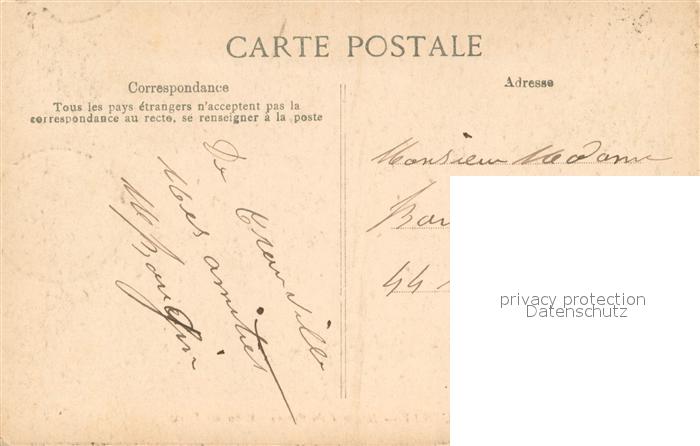 CARTE POSTALE
Correspondance
Tous les pays étrangers n'acceptent pas la
correspondance au recto, se renseigner à la poste
Adresse
De Granville
Mes amitiés
Monsieur Madame
44
privacy protection
Datenschutz